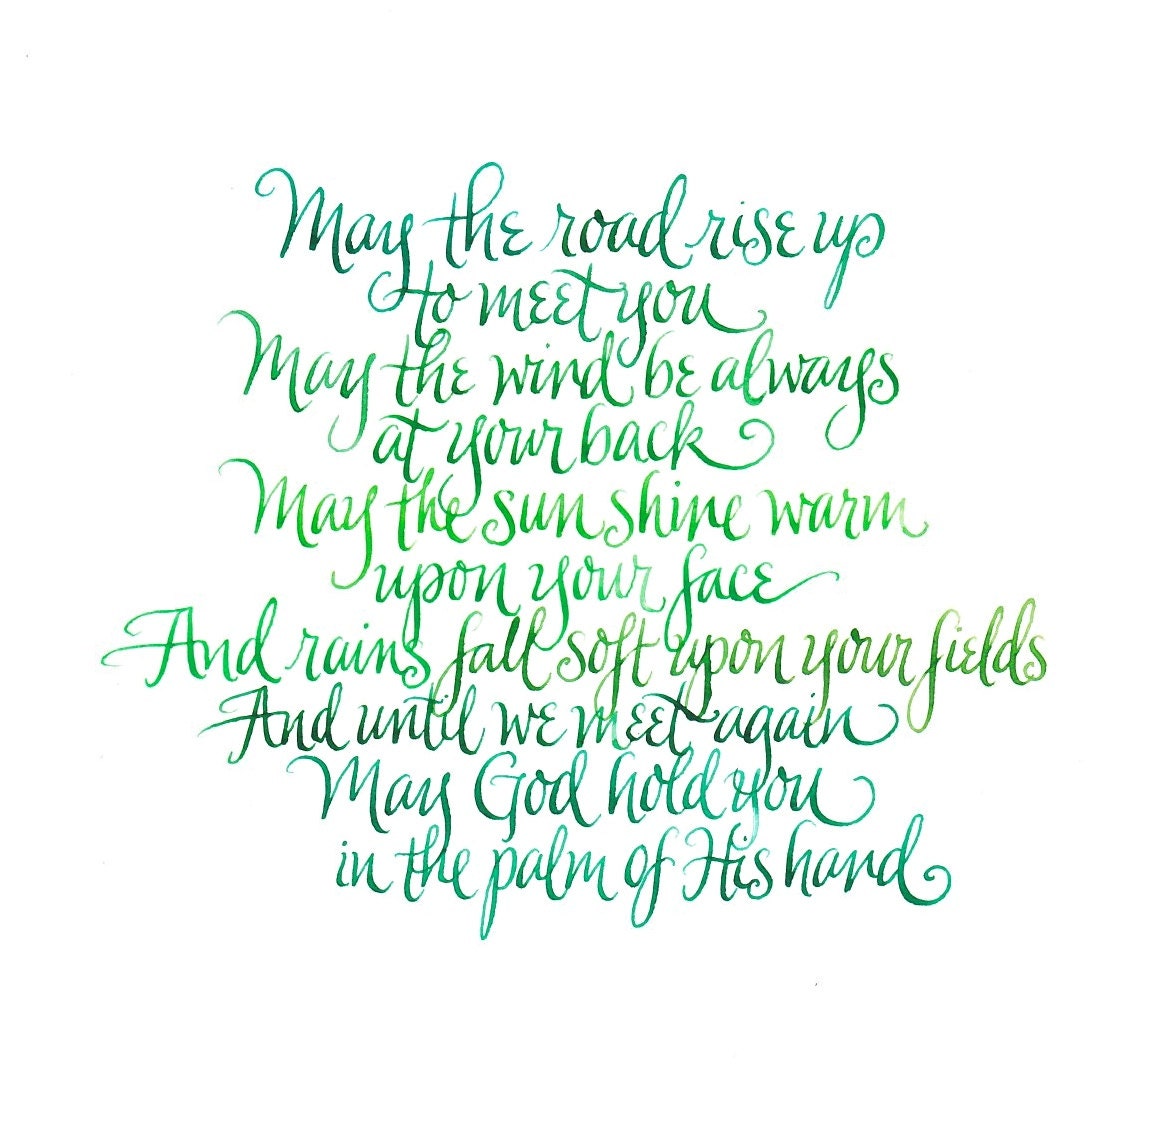 May the road rise up
to meet you
May the wind be always
at your back
May the sun shine warm
upon your face
And rains fall soft upon your fields
And until we meet again
May God hold you
in the palm of His hand